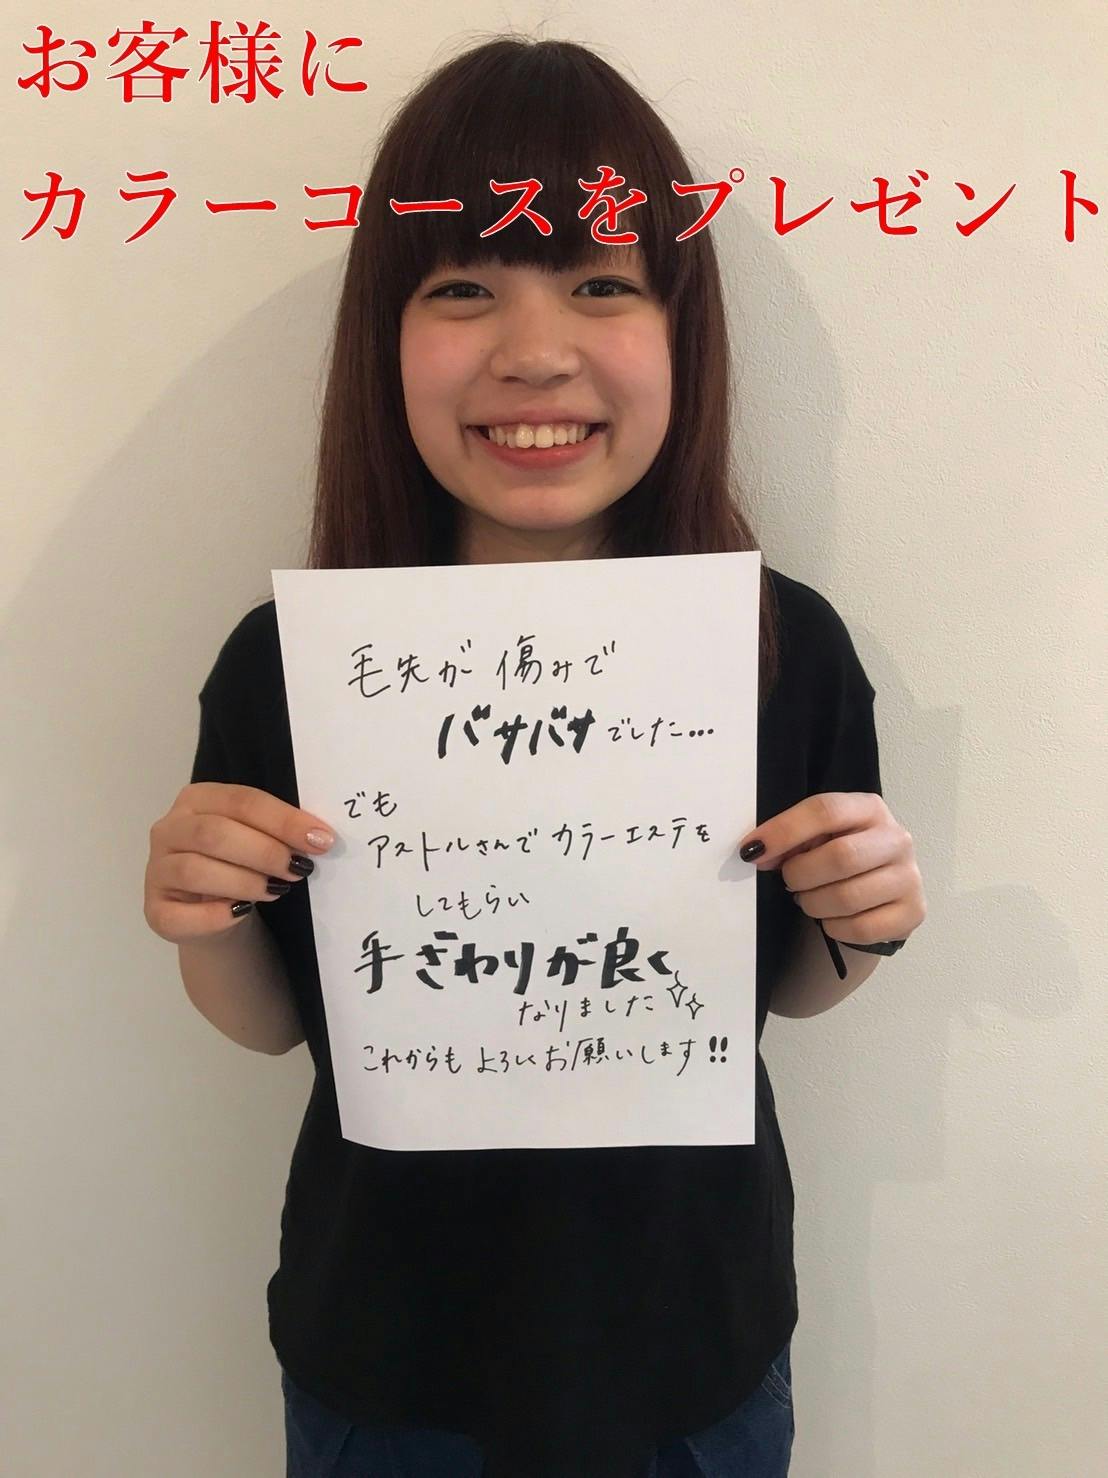 お客様に
カラーコースをプレゼント
毛先が傷みで
バサバサでした...
でも
アストルさんでカラーエステを
してもらい
手ざわりが良く
なりました
これからもよろしくお願いします!!